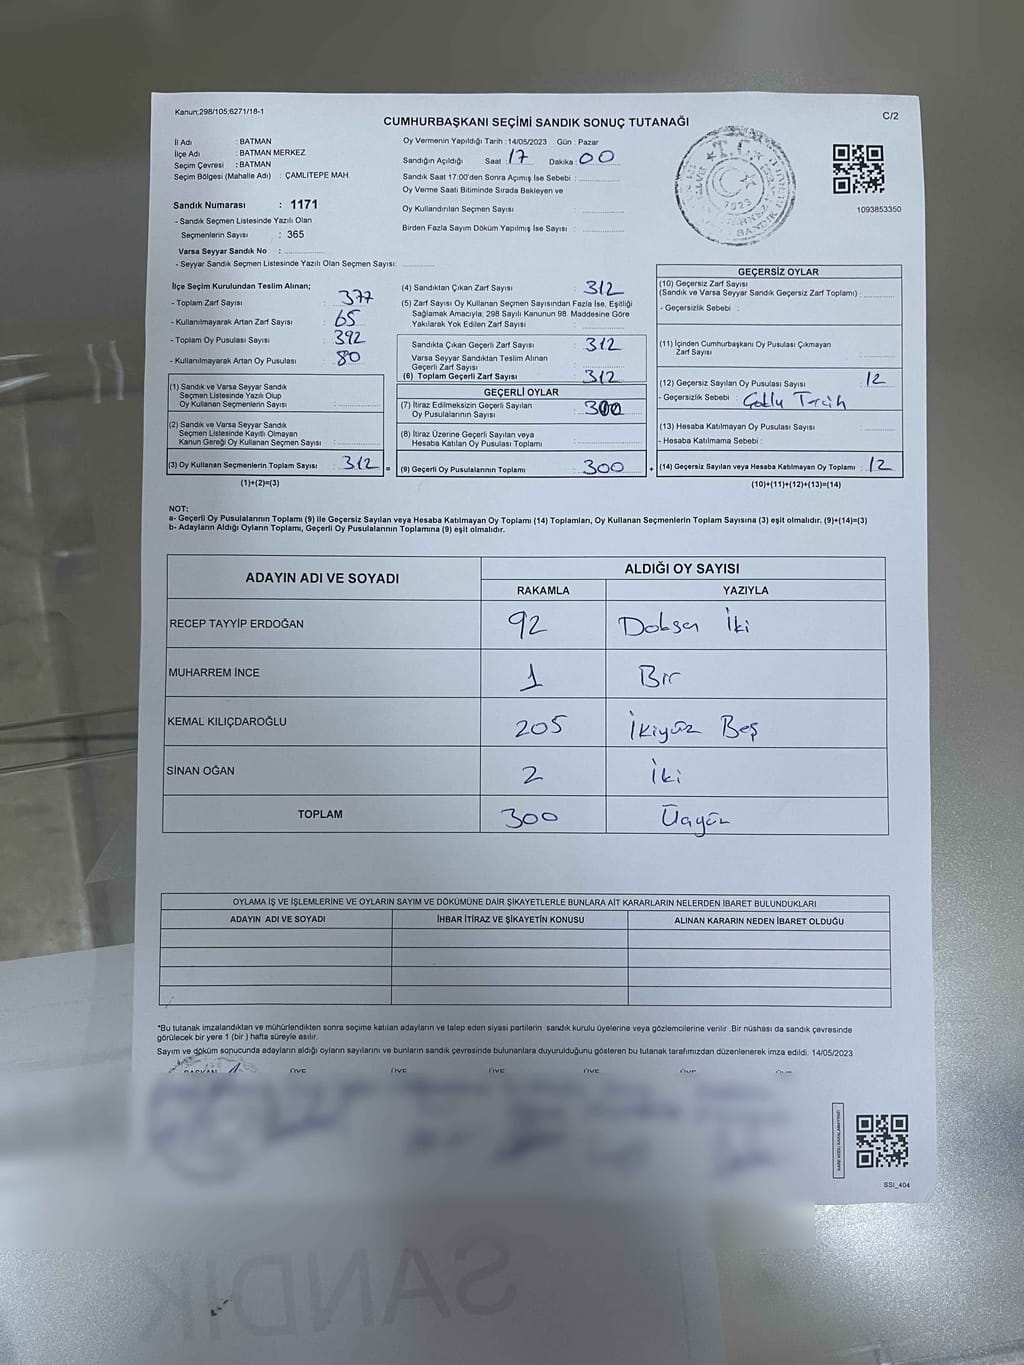 Kanun;298/105;6271/18-1
C/2
CUMHURBAŞKANI SEÇİMİ SANDIK SONUÇ TUTANAĞI
İl Adı : BATMAN
İlçe Adı : BATMAN MERKEZ
Seçim Çevresi : BATMAN
Seçim Bölgesi (Mahalle Adı) : ÇAMLITEPE MAH.
Sandık Numarası : 1171
- Sandık Seçmen Listesinde Yazılı Olan
Seçmenlerin Sayısı : 365
Varsa Seyyar Sandık No :
- Seyyar Sandık Seçmen Listesinde Yazılı Olan Seçmen Sayısı:
Oy Vermenin Yapıldığı Tarih :14/05/2023 Gün : Pazar
Sandığın Açıldığı Saat 17 Dakika 00
Sandık Saat 17:00'den Sonra Açımış İse Sebebi :
Oy Verme Saati Bitiminde Sırada Bekleyen ve
Oy Kullandırılan Seçmen Sayısı :
Birden Fazla Sayım Döküm Yapılmış İse Sayısı :
T.C.
1923
SANDIK
1093853350
İlçe Seçim Kurulundan Teslim Alınan;
- Toplam Zarf Sayısı : 377
- Kullanılmayarak Artan Zarf Sayısı : 65
- Toplam Oy Pusulası Sayısı : 392
- Kullanılmayarak Artan Oy Pusulası : 80
(1) Sandık ve Varsa Seyyar Sandık
Seçmen Listesinde Yazılı Olup
Oy Kullanan Seçmenlerin Sayısı :
(2) Sandık ve Varsa Seyyar Sandık
Seçmen Listesinde Kayıtlı Olmayan
Kanun Gereği Oy Kullanan Seçmen Sayısı :
(3) Oy Kullanan Seçmenlerin Toplam Sayısı : 312 =
(1)+(2)=(3)
(4) Sandıktan Çıkan Zarf Sayısı : 312
(5) Zarf Sayısı Oy Kullanan Seçmen Sayısından Fazla İse, Eşitliği
Sağlamak Amacıyla; 298 Sayılı Kanunun 98. Maddesine Göre
Yakılarak Yok Edilen Zarf Sayısı :
Sandıkta Çıkan Geçerli Zarf Sayısı : 312
Varsa Seyyar Sandıktan Teslim Alınan
Geçerli Zarf Sayısı :
(6) Toplam Geçerli Zarf Sayısı : 312
GEÇERLİ OYLAR
(7) İtiraz Edilmeksizin Geçerli Sayılan
Oy Pusulalarının Sayısı : 300
(8) İtiraz Üzerine Geçerli Sayılan veya
Hesaba Katılan Oy Pusulası Toplamı :
(9) Geçerli Oy Pusulalarının Toplamı : 300 +
GEÇERSİZ OYLAR
(10) Geçersiz Zarf Sayısı
(Sandık ve Varsa Seyyar Sandık Geçersiz Zarf Toplamı) :
- Geçersizlik Sebebi :
(11) İçinden Cumhurbaşkanı Oy Pusulası Çıkmayan
Zarf Sayısı :
(12) Geçersiz Sayılan Oy Pusulası Sayısı : 12
- Geçersizlik Sebebi : Çoklu Tercih
(13) Hesaba Katılmayan Oy Pusulası Sayısı :
- Hesaba Katılmama Sebebi :
(14) Geçersiz Sayılan veya Hesaba Katılmayan Oy Toplamı : 12
(10)+(11)+(12)+(13)=(14)
NOT:
a- Geçerli Oy Pusulalarının Toplamı (9) ile Geçersiz Sayılan veya Hesaba Katılmayan Oy Toplamı (14) Toplamları, Oy Kullanan Seçmenlerin Toplam Sayısına (3) eşit olmalıdır. (9)+(14)=(3)
b- Adayların Aldığı Oyların Toplamı, Geçerli Oy Pusulalarının Toplamına (9) eşit olmalıdır.
ADAYIN ADI VE SOYADI ALDIĞI OY SAYISI
RAKAMLA YAZIYLA
RECEP TAYYİP ERDOĞAN 92 Doksan İki
MUHARREM İNCE 1 Bir
KEMAL KILIÇDAROĞLU 205 İkiyüz Beş
SİNAN OĞAN 2 İki
TOPLAM 300 Üçyüz
OYLAMA İŞ VE İŞLEMLERİNE VE OYLARIN SAYIM VE DÖKÜMÜNE DAİR ŞİKAYETLERLE BUNLARA AİT KARARLARIN NELERDEN İBARET BULUNDUKLARI
ADAYIN ADI VE SOYADI İHBAR İTİRAZ VE ŞİKAYETİN KONUSU ALINAN KARARIN NEDEN İBARET OLDUĞU
*Bu tutanak imzalandıktan ve mühürlendikten sonra seçime katılan adayların ve talep eden siyasi partilerin sandık kurulu üyelerine veya gözlemcilerine verilir .Bir nüshası da sandık çevresinde
görülecek bir yere 1 (bir ) hafta süreyle asılır.
Sayım ve döküm sonucunda adayların aldığı oyların sayılarını ve bunların sandık çevresinde bulunanlara duyurulduğunu gösteren bu tutanak tarafımızdan düzenlenerek imza edildi. 14/05/2023
BAŞKAN ÜYE ÜYE ÜYE ÜYE ÜYE ÜYE
KARE KODU KARALAMAYINIZ!
SSI_404
SANDIK